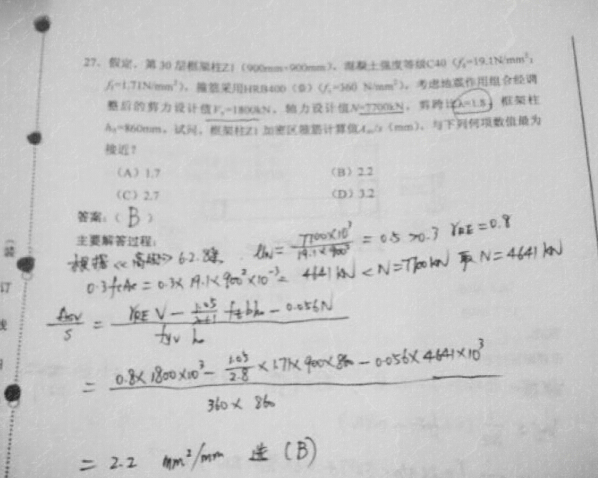 27. 假定，第30层框架柱Z1（900mm×900mm），混凝土强度等级C40（fc=19.1N/mm²；
ft=1.71N/mm²），箍筋采用HRB400（Φ）（fy=360 N/mm²），考虑地震作用组合经调
整后的剪力设计值Vy=1800kN，轴力设计值N=7700kN，剪跨比λ=1.8，框架柱
h0=860mm，试问，框架柱Z1加密区箍筋计算值Asv/s（mm），与下列何项数值最为
接近？
（A）1.7 （B）2.2
（C）2.7 （D）3.2
答案：（ B ）
主要解答过程：
根据《高规》6.2.8条, μN = 7700×10³ / 19.1×900² = 0.5 >0.3 γRE=0.8
0.3fcAc = 0.3×19.1×900²×10⁻³ = 4641 kN < N=7700kN 取 N=4641 kN
Asv/s = (γRE V − 1.05/(λ+1) ft b h0 − 0.056N) / (fyv h0)
= (0.8×1800×10³ − 1.05/2.8 ×1.71×900×860 − 0.056×4641×10³) / (360×860)
= 2.2 mm²/mm 选（B）
装
订
线